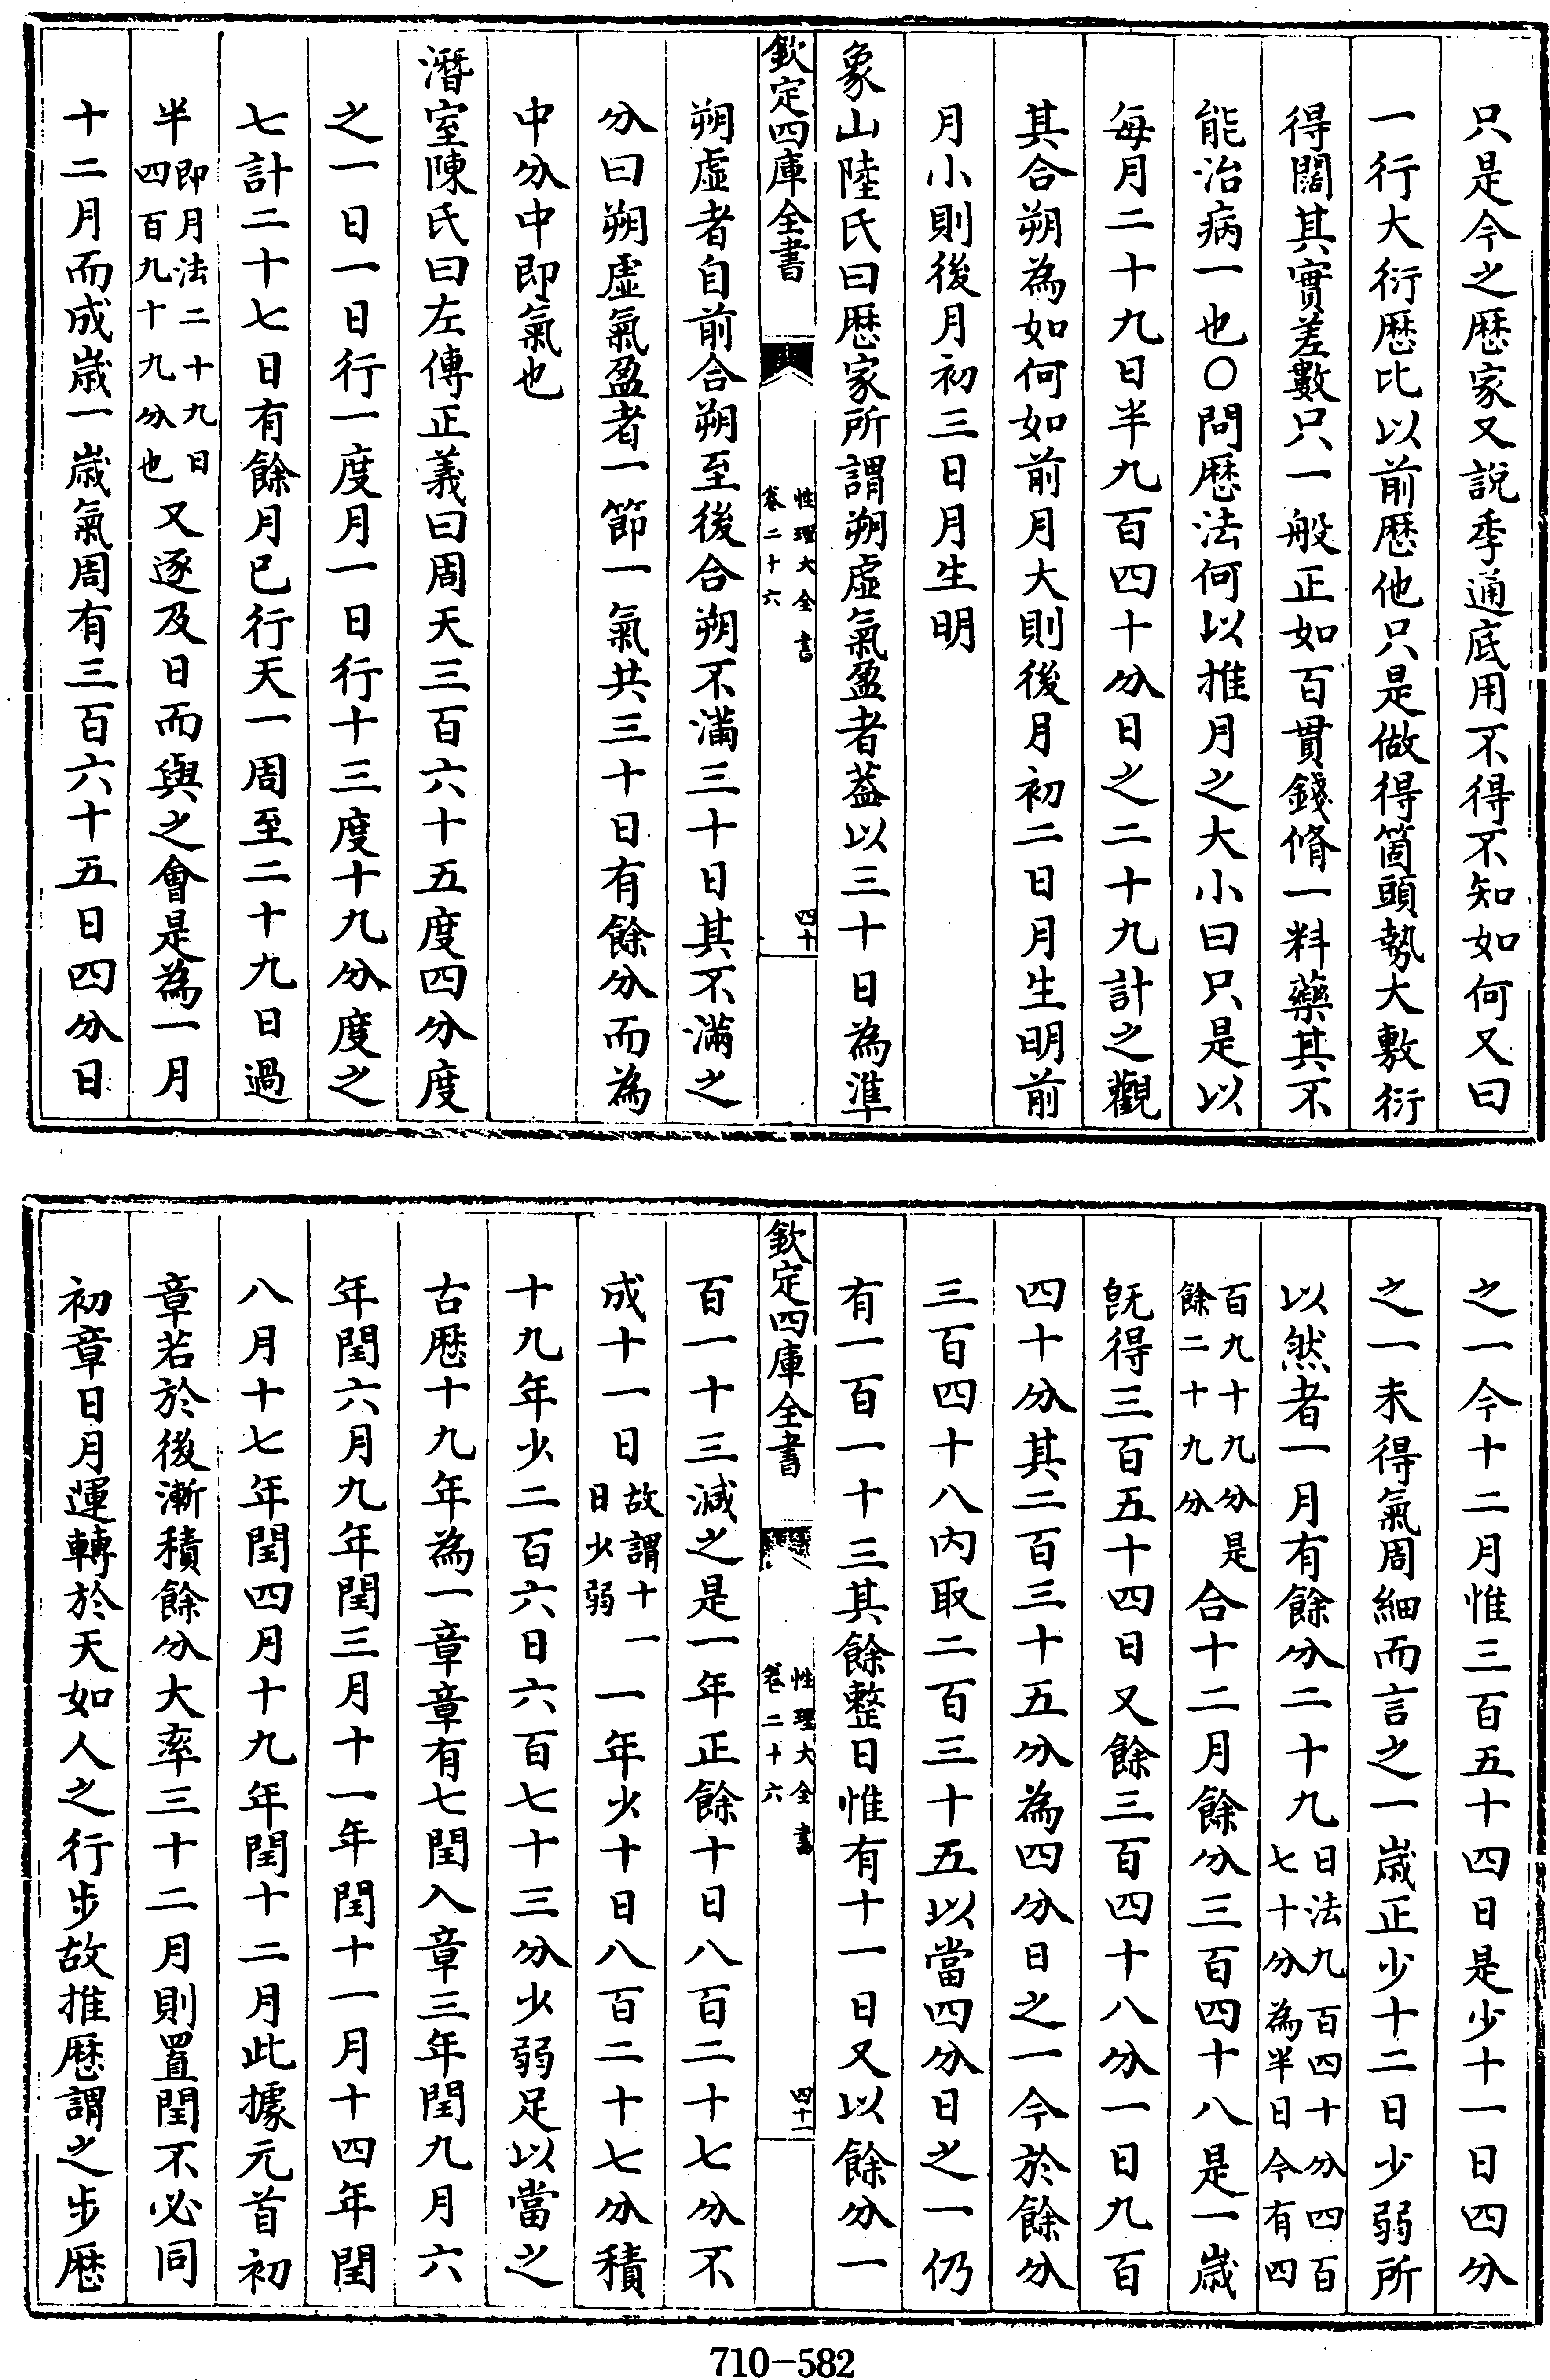 只是今之歴家又説季通底用不得不知如何又曰
一行大衍歴比以前歴他只是做得箇頭勢大敷衍
得闊其實差數只一般正如百貫錢脩一料藥其不
能治病一也○問歴法何以推月之大小曰只是以
每月二十九日半九百四十分日之二十九計之觀
其合朔為如何如前月大則後月初二日月生明前
月小則後月初三日月生明
象山陸氏曰歴家所謂朔虚氣盈者葢以三十日為準
欽定四庫全書
性理大全書
卷二十六
四十
朔虚者自前合朔至後合朔不滿三十日其不滿之
分曰朔虚氣盈者一節一氣共三十日有餘分而為
中分中即氣也
潛室陳氏曰左傳正義曰周天三百六十五度四分度
之一日一日行一度月一日行十三度十九分度之
七計二十七日有餘月已行天一周至二十九日過
半即月法二十九日四百九十九分也又逐及日而與之會是為一月
十二月而成歳一歳氣周有三百六十五日四分日
之一今十二月惟三百五十四日是少十一日四分
之一未得氣周細而言之一歳正少十二日少弱所
以然者一月有餘分二十九日法九百四十分四百七十分為半日今有四
百九十九分是餘二十九分合十二月餘分三百四十八是一歳
既得三百五十四日又餘三百四十八分一日九百
四十分其二百三十五分為四分日之一今於餘分
三百四十八内取二百三十五以當四分日之一仍
有一百一十三其餘整日惟有十一日又以餘分一
欽定四庫全書
性理大全書
卷二十六
四十一
百一十三減之是一年正餘十日八百二十七分不
成十一日故謂十一日少弱一年少十日八百二十七分積
十九年少二百六日六百七十三分少弱足以當之
古歴十九年為一章章有七閏入章三年閏九月六
年閏六月九年閏三月十一年閏十一月十四年閏
八月十七年閏四月十九年閏十二月此據元首初
章若於後漸積餘分大率三十二月則置閏不必同
初章日月運轉於天如人之行步故推歴謂之步歴
710-582